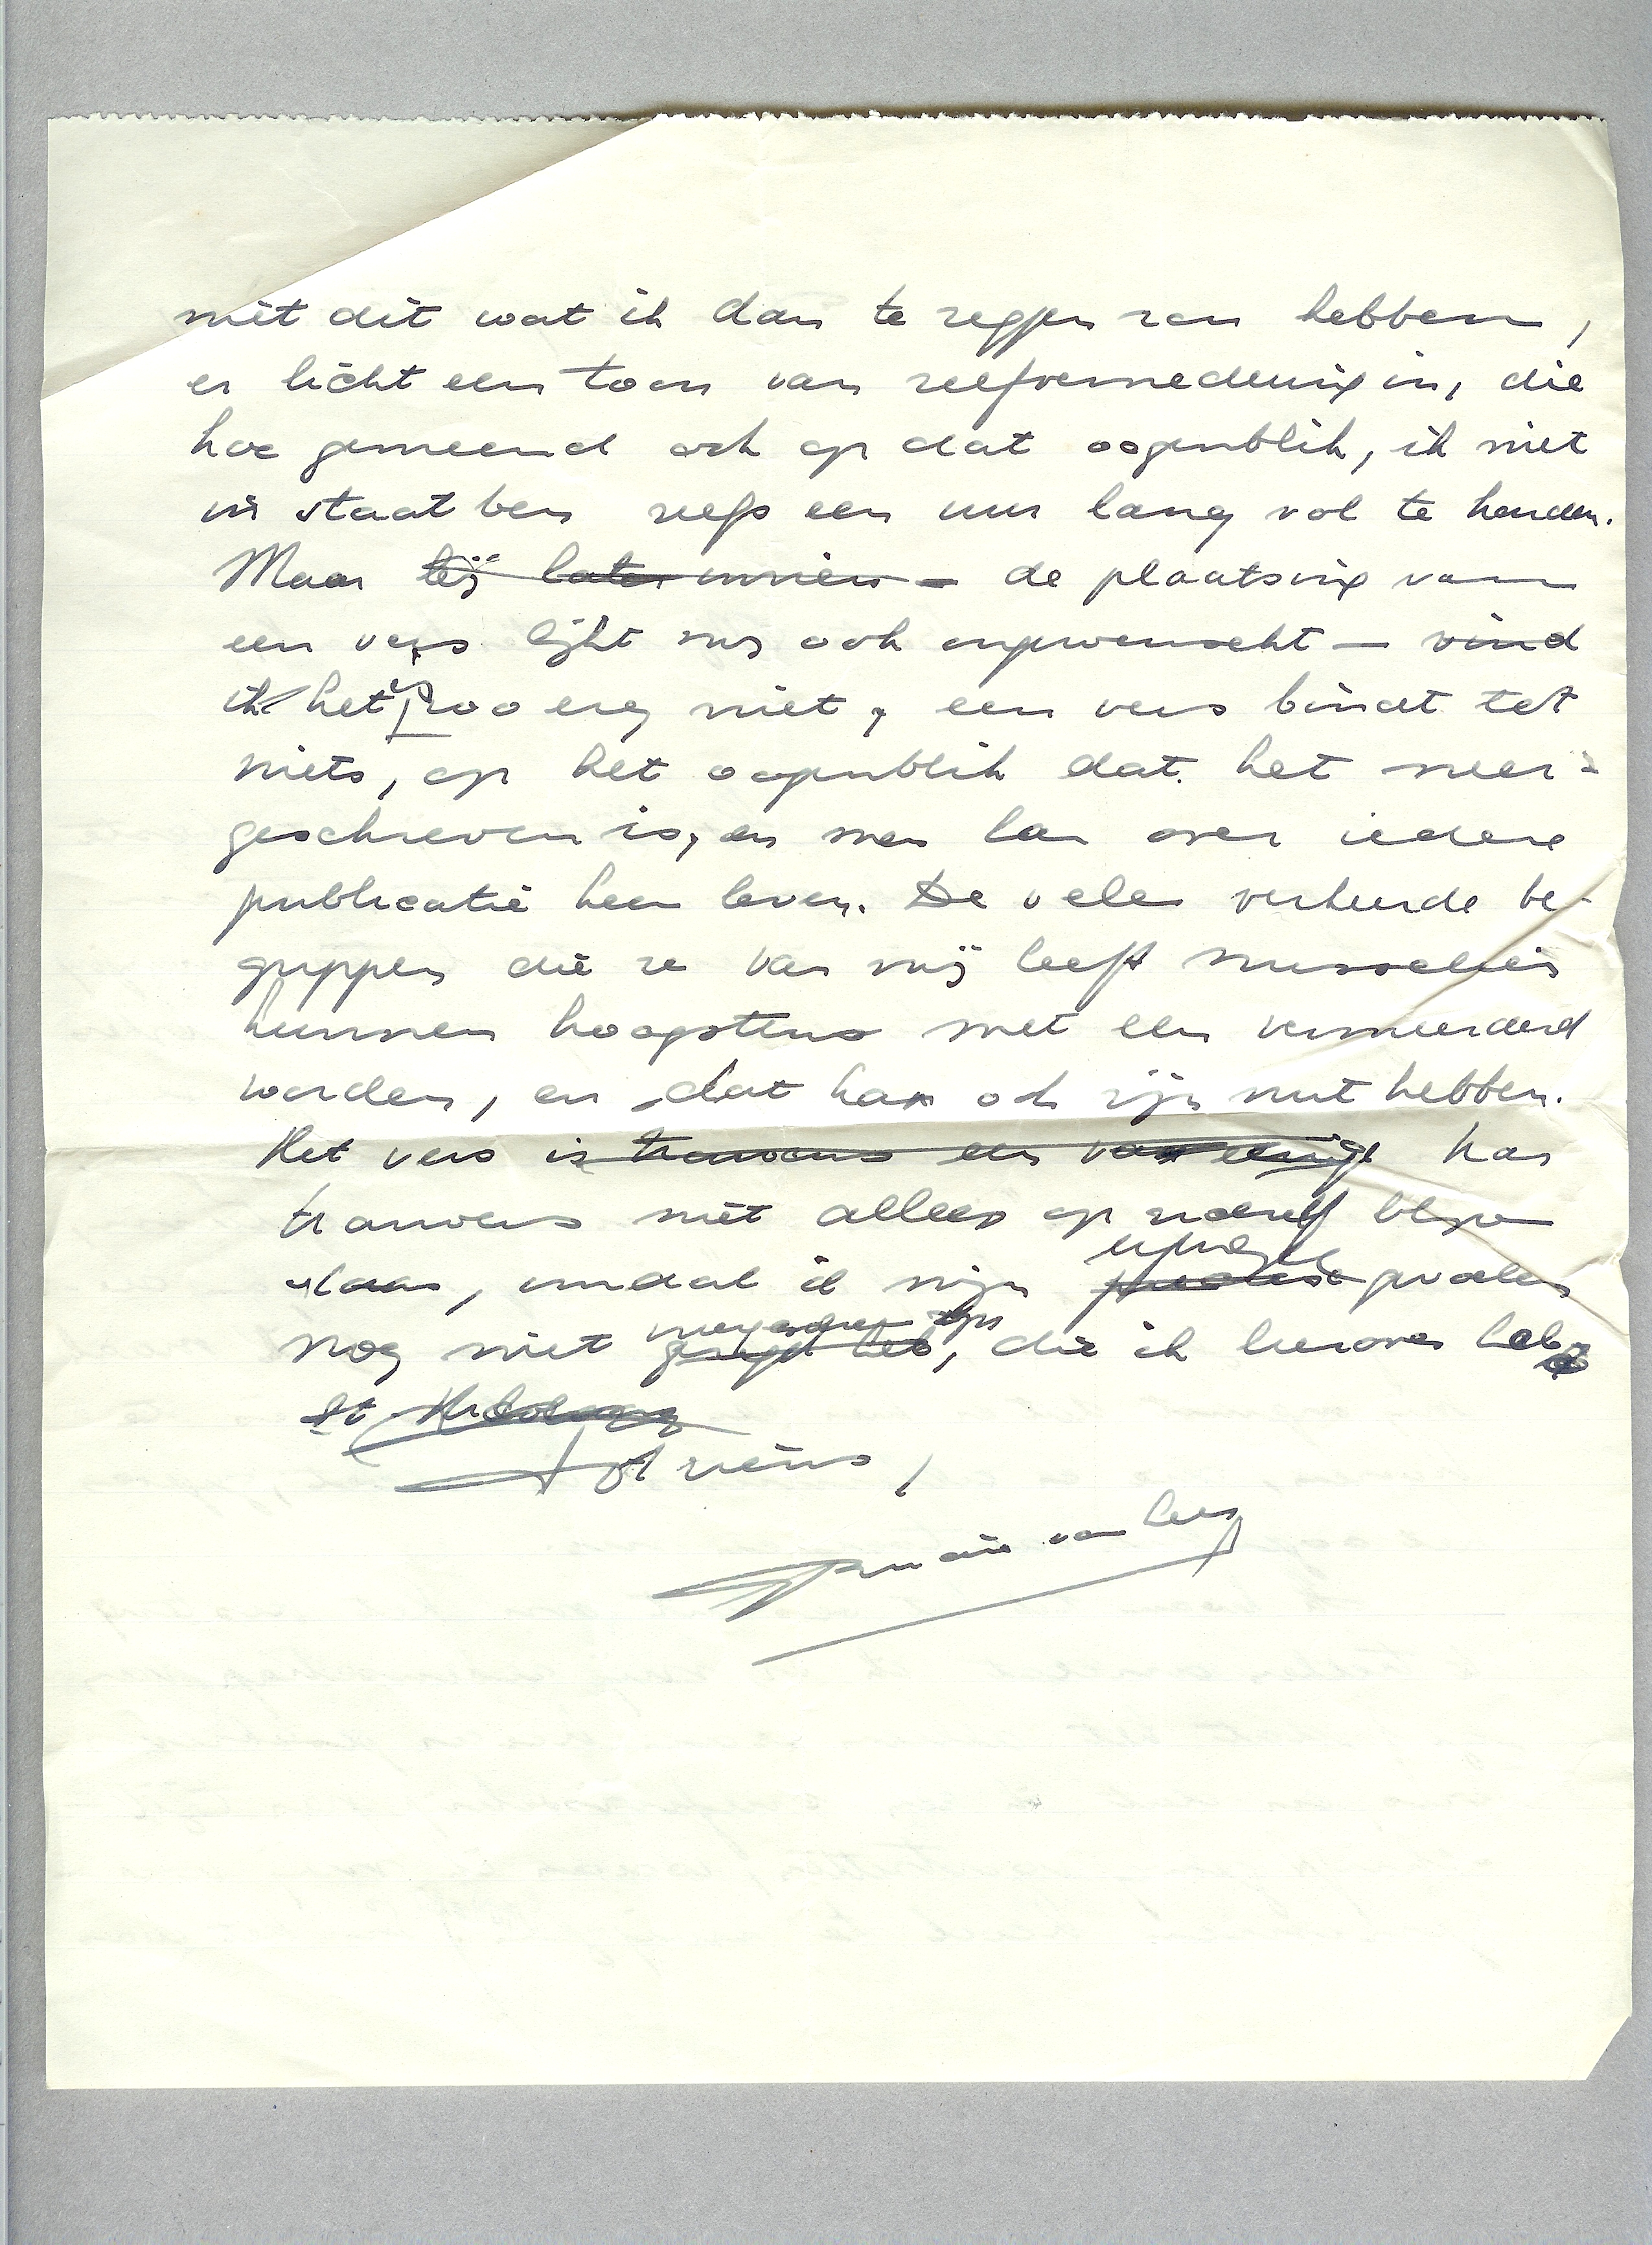 niet dit wat ik dan te zeggen zou hebben,
er licht een toon van zelfvernedering in, die
hoe gemeend ook op dat oogenblik, ik niet
in staat ben zelfs een uur lang vol te houden.
Maar de plaatsing van
een vers lijkt mij ook ongewenscht — vind
ik het zoo erg niet, een vers bindt tot
niets, op het oogenblik dat het neer-
geschreven is, en men kan over iedere
publicatie heen leven. De vele verkeerde be-
grippen die ze van mij heeft misschien
kunnen hoogstens met een vermeerderd
worden, en dat kan ook zijn nut hebben.
Het vers is trouwens een van eenige kan
trouwens niet alleen op zichzelf blijven
staan, omdat ik mijn
nog niet die ik hierover heb
Tot ziens,